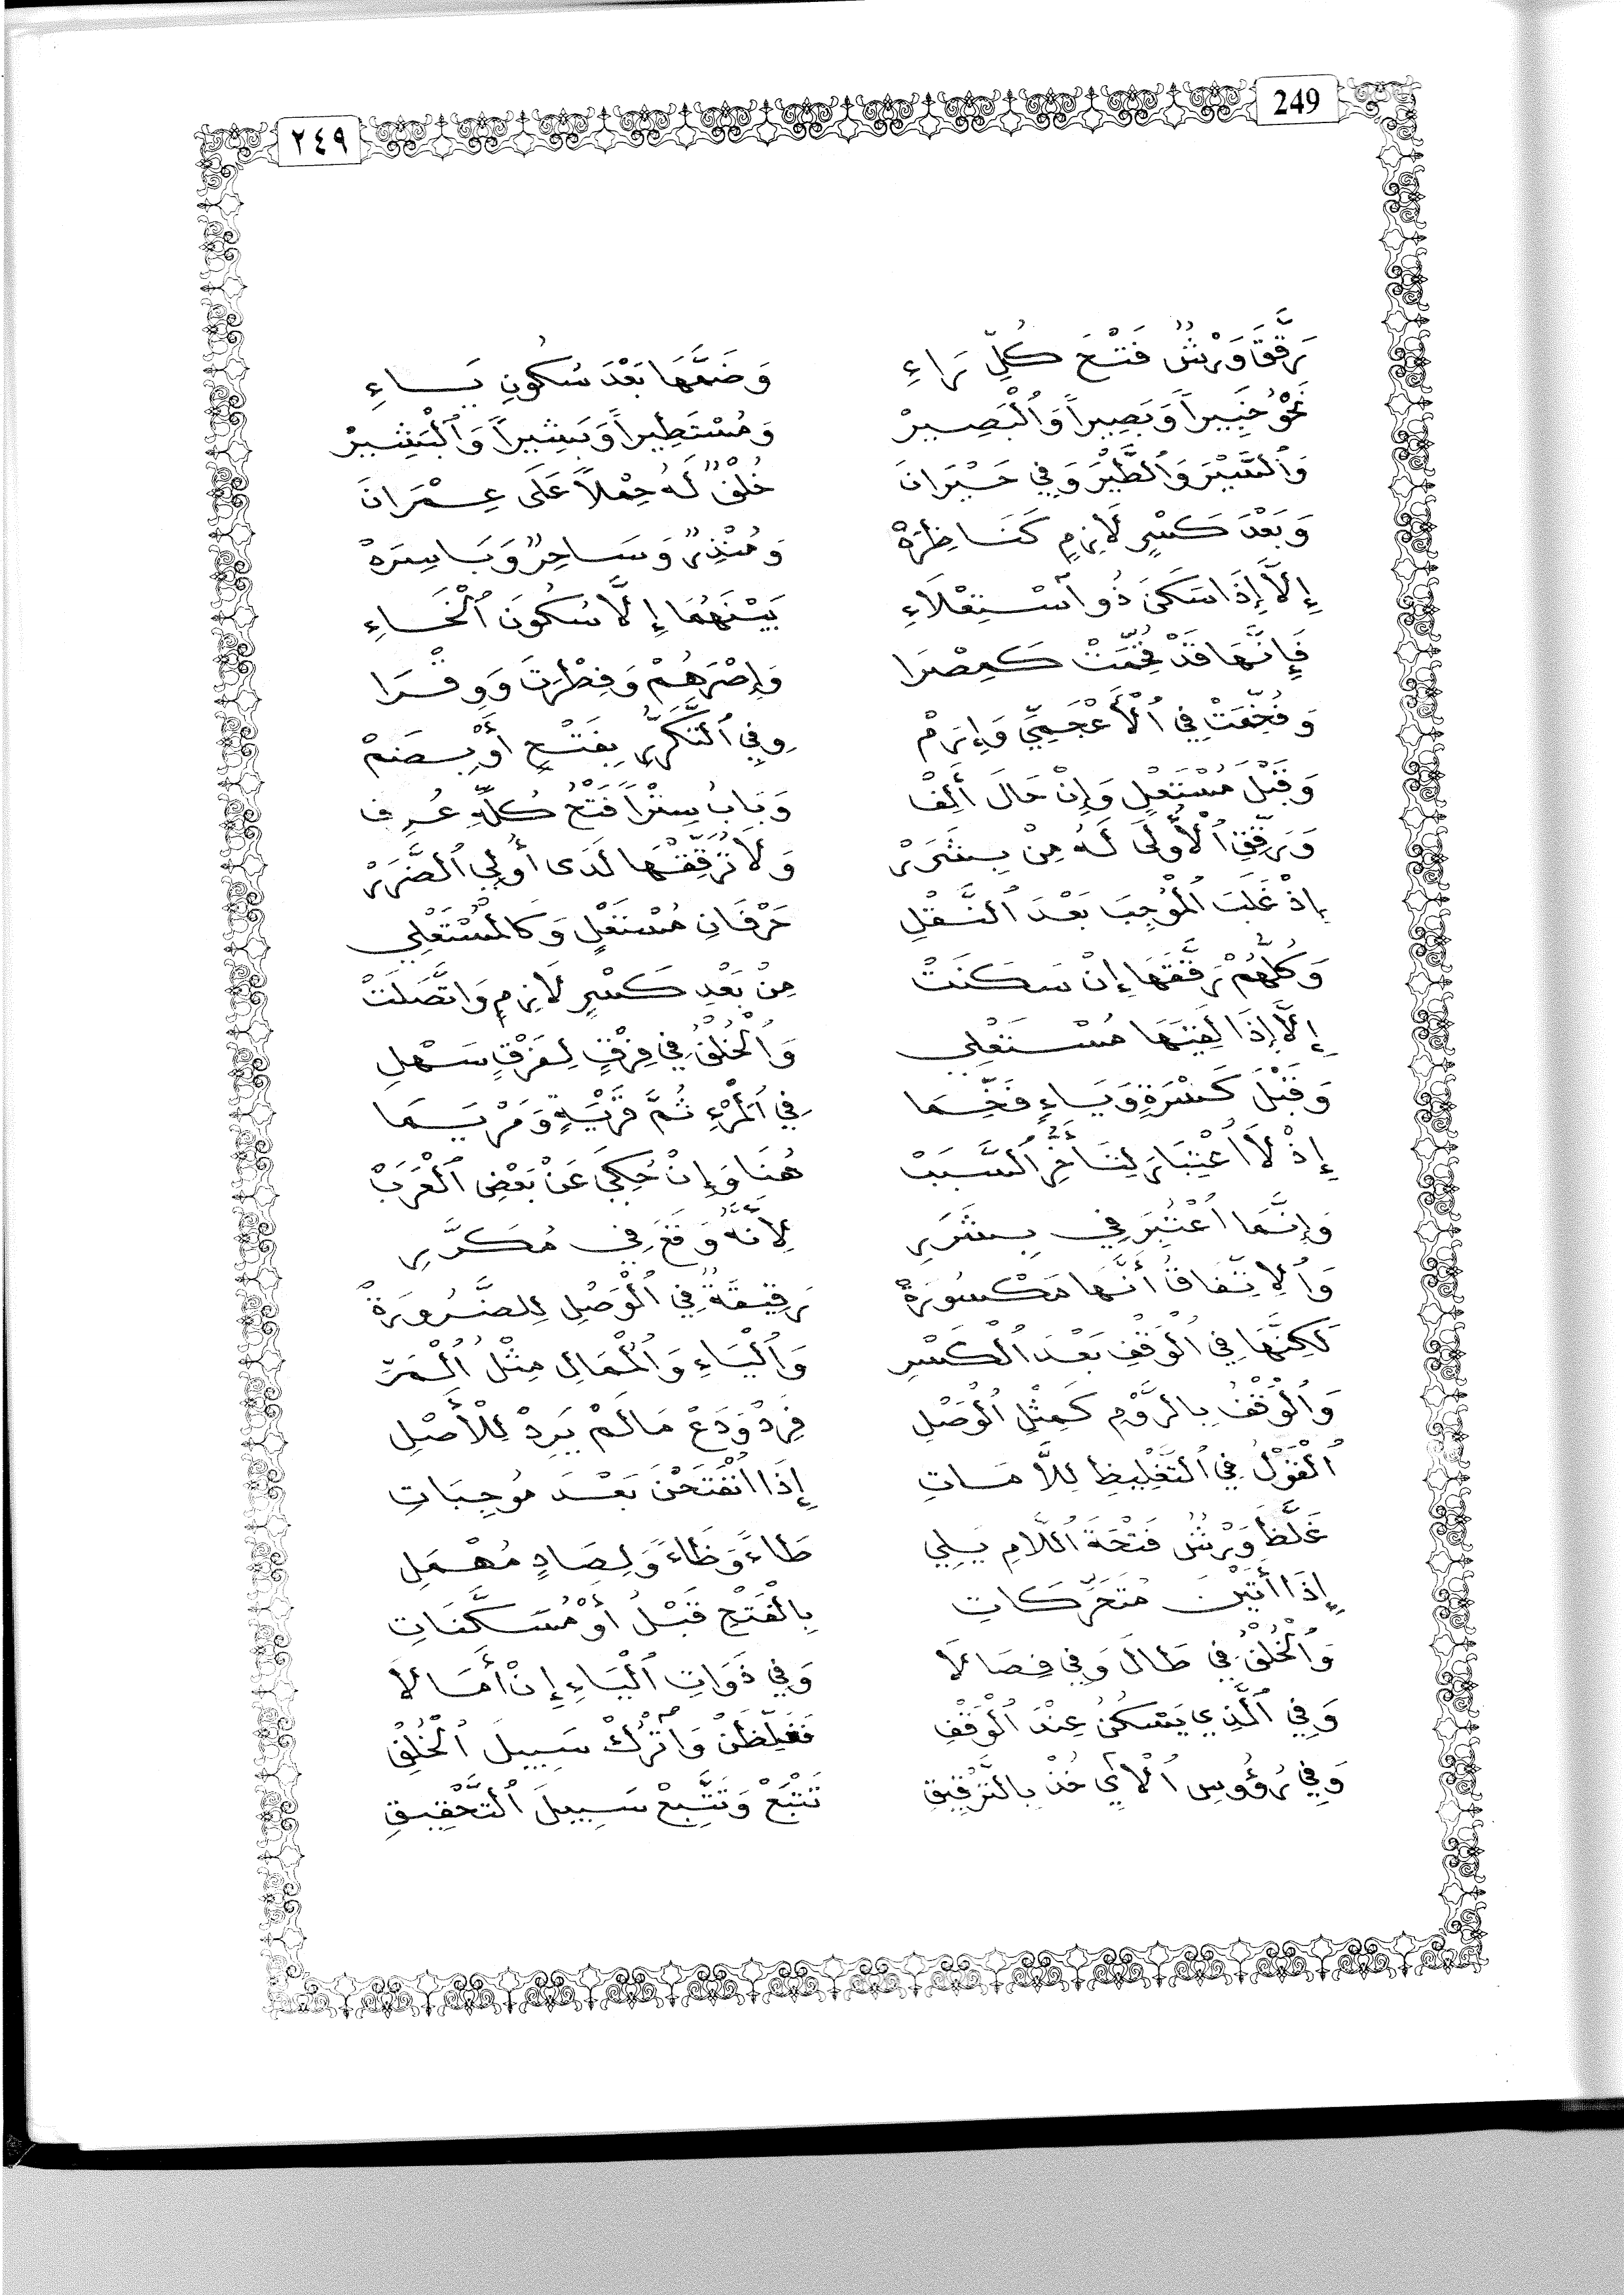 249
٢٤٩
رَقَّقَ وَرْشٌ فَتْحَ كُلِّ رَاءِ وَضَمَّهَا بَعْدَ سُكُونِ يَاءِ
نَحْوُ خَبِيراً وَبَصِيراً وَالْبَصِيرْ وَمُسْتَطِيراً وَبَشِيراً وَالْبَشِيرْ
وَالسَّيْرَ وَالطَّيْرَ وَفِي حَيْرَانَ خُلْفٌ لَهُ حِمْلاً عَلَى عِمْرَانَ
وَبَعْدَ كَسْرٍ لَازِمٍ كَنَاظِرَهْ وَمُنْذِرٌ وَسَاحِرٌ وَبَاسِرَهْ
إِلَّا إِذَا سَكَنَ ذُو اسْتِعْلَاءِ بَيْنَهُمَا إِلَّا سُكُونَ الْخَاءِ
فَإِنَّهَا قَدْ فُخِّمَتْ كَمِصْرَا وَإِصْرَهُمْ وَفِطْرَتَ وَوِقْرَا
وَفُخِّمَتْ فِي الْأَعْجَمِيِّ وَإِرَمْ وَفِي التَّكَرُّرِ بِفَتْحٍ أَوْ بِضَمْ
وَقَبْلَ مُسْتَعْلٍ وَإِنْ حَالَ أَلِفْ وَبَابُ سِتْراً فَتْحُ كُلِّهِ عُرِفْ
وَرَقِّقِ الْأُولَى لَهُ مِنْ بِشَرَرْ وَلَا تُرَقِّقْهَا لَدَى أُولِي الضَّرَرْ
إِذْ غَلَبَ الْمُوجِبَ بَعْدَ النَّقْلِ حَرْفَانِ مُسْتَعْلٍ وَكَالْمُسْتَعْلِي
وَكُلُّهُمْ رَقَّقَهَا إِنْ سَكَنَتْ مِنْ بَعْدِ كَسْرٍ لَازِمٍ وَاتَّصَلَتْ
إِلَّا إِذَا لَقِيَهَا مُسْتَعْلِي وَالْخُلْفُ فِي فِرْقٍ لِفَرْقٍ سَهْلِ
وَقَبْلَ كَسْرَةٍ وَيَاءٍ فَخِّمَا فِي الْمَرْءِ ثُمَّ قَرْيَةٍ وَمَرْيَمَا
إِذْ لَا اعْتِبَارَ لِتَأَخُّرِ السَّبَبْ هُنَا وَإِنْ حُكِيَ عَنْ بَعْضِ الْعَرَبْ
وَإِنَّمَا اعْتُبِرَ فِي بِشَرَرِ لِأَنَّهُ وَقَعَ فِي مُكَرَّرِ
وَالِاتِّفَاقُ أَنَّهَا مَكْسُورَهْ رَقِيقَةٌ فِي الْوَصْلِ لِلضَّرُورَهْ
لَكِنَّهَا فِي الْوَقْفِ بَعْدَ الْكَسْرِ وَالْيَاءِ وَالْمُمَالِ مِثْلُ الْمَرِّ
وَالْوَقْفُ بِالرَّوْمِ كَمِثْلِ الْوَصْلِ فَرِدْ وَدَعْ مَا لَمْ يَرِدْ لِلْأَصْلِ
الْقَوْلُ فِي التَّغْلِيظِ لِلَّامَاتِ إِذَا انْفَتَحْنَ بَعْدَ مُوجِبَاتِ
غَلَّظَ وَرْشٌ فَتْحَةَ اللَّامِ يَلِي طَاءً وَظَاءً وَلِصَادٍ مُهْمَلِ
إِذَا أَتَيْنَ مُتَحَرِّكَاتِ بِالْفَتْحِ قَبْلُ أَوْ مُسَكَّنَاتِ
وَالْخُلْفُ فِي طَالَ وَفِي فِصَالَا وَفِي ذَوَاتِ الْيَاءِ إِنْ أَمَالَا
وَفِي الَّذِي يَسْكُنُ عِنْدَ الْوَقْفِ فَغَلِّظَنْ وَاتْرُكْ سَبِيلَ الْخُلْفِ
وَفِي رُؤُوسِ الْآيِ خُذْ بِالتَّرْقِيقِ تَتْبَعْ وَتَتَّبِعْ سَبِيلَ التَّحْقِيقِ